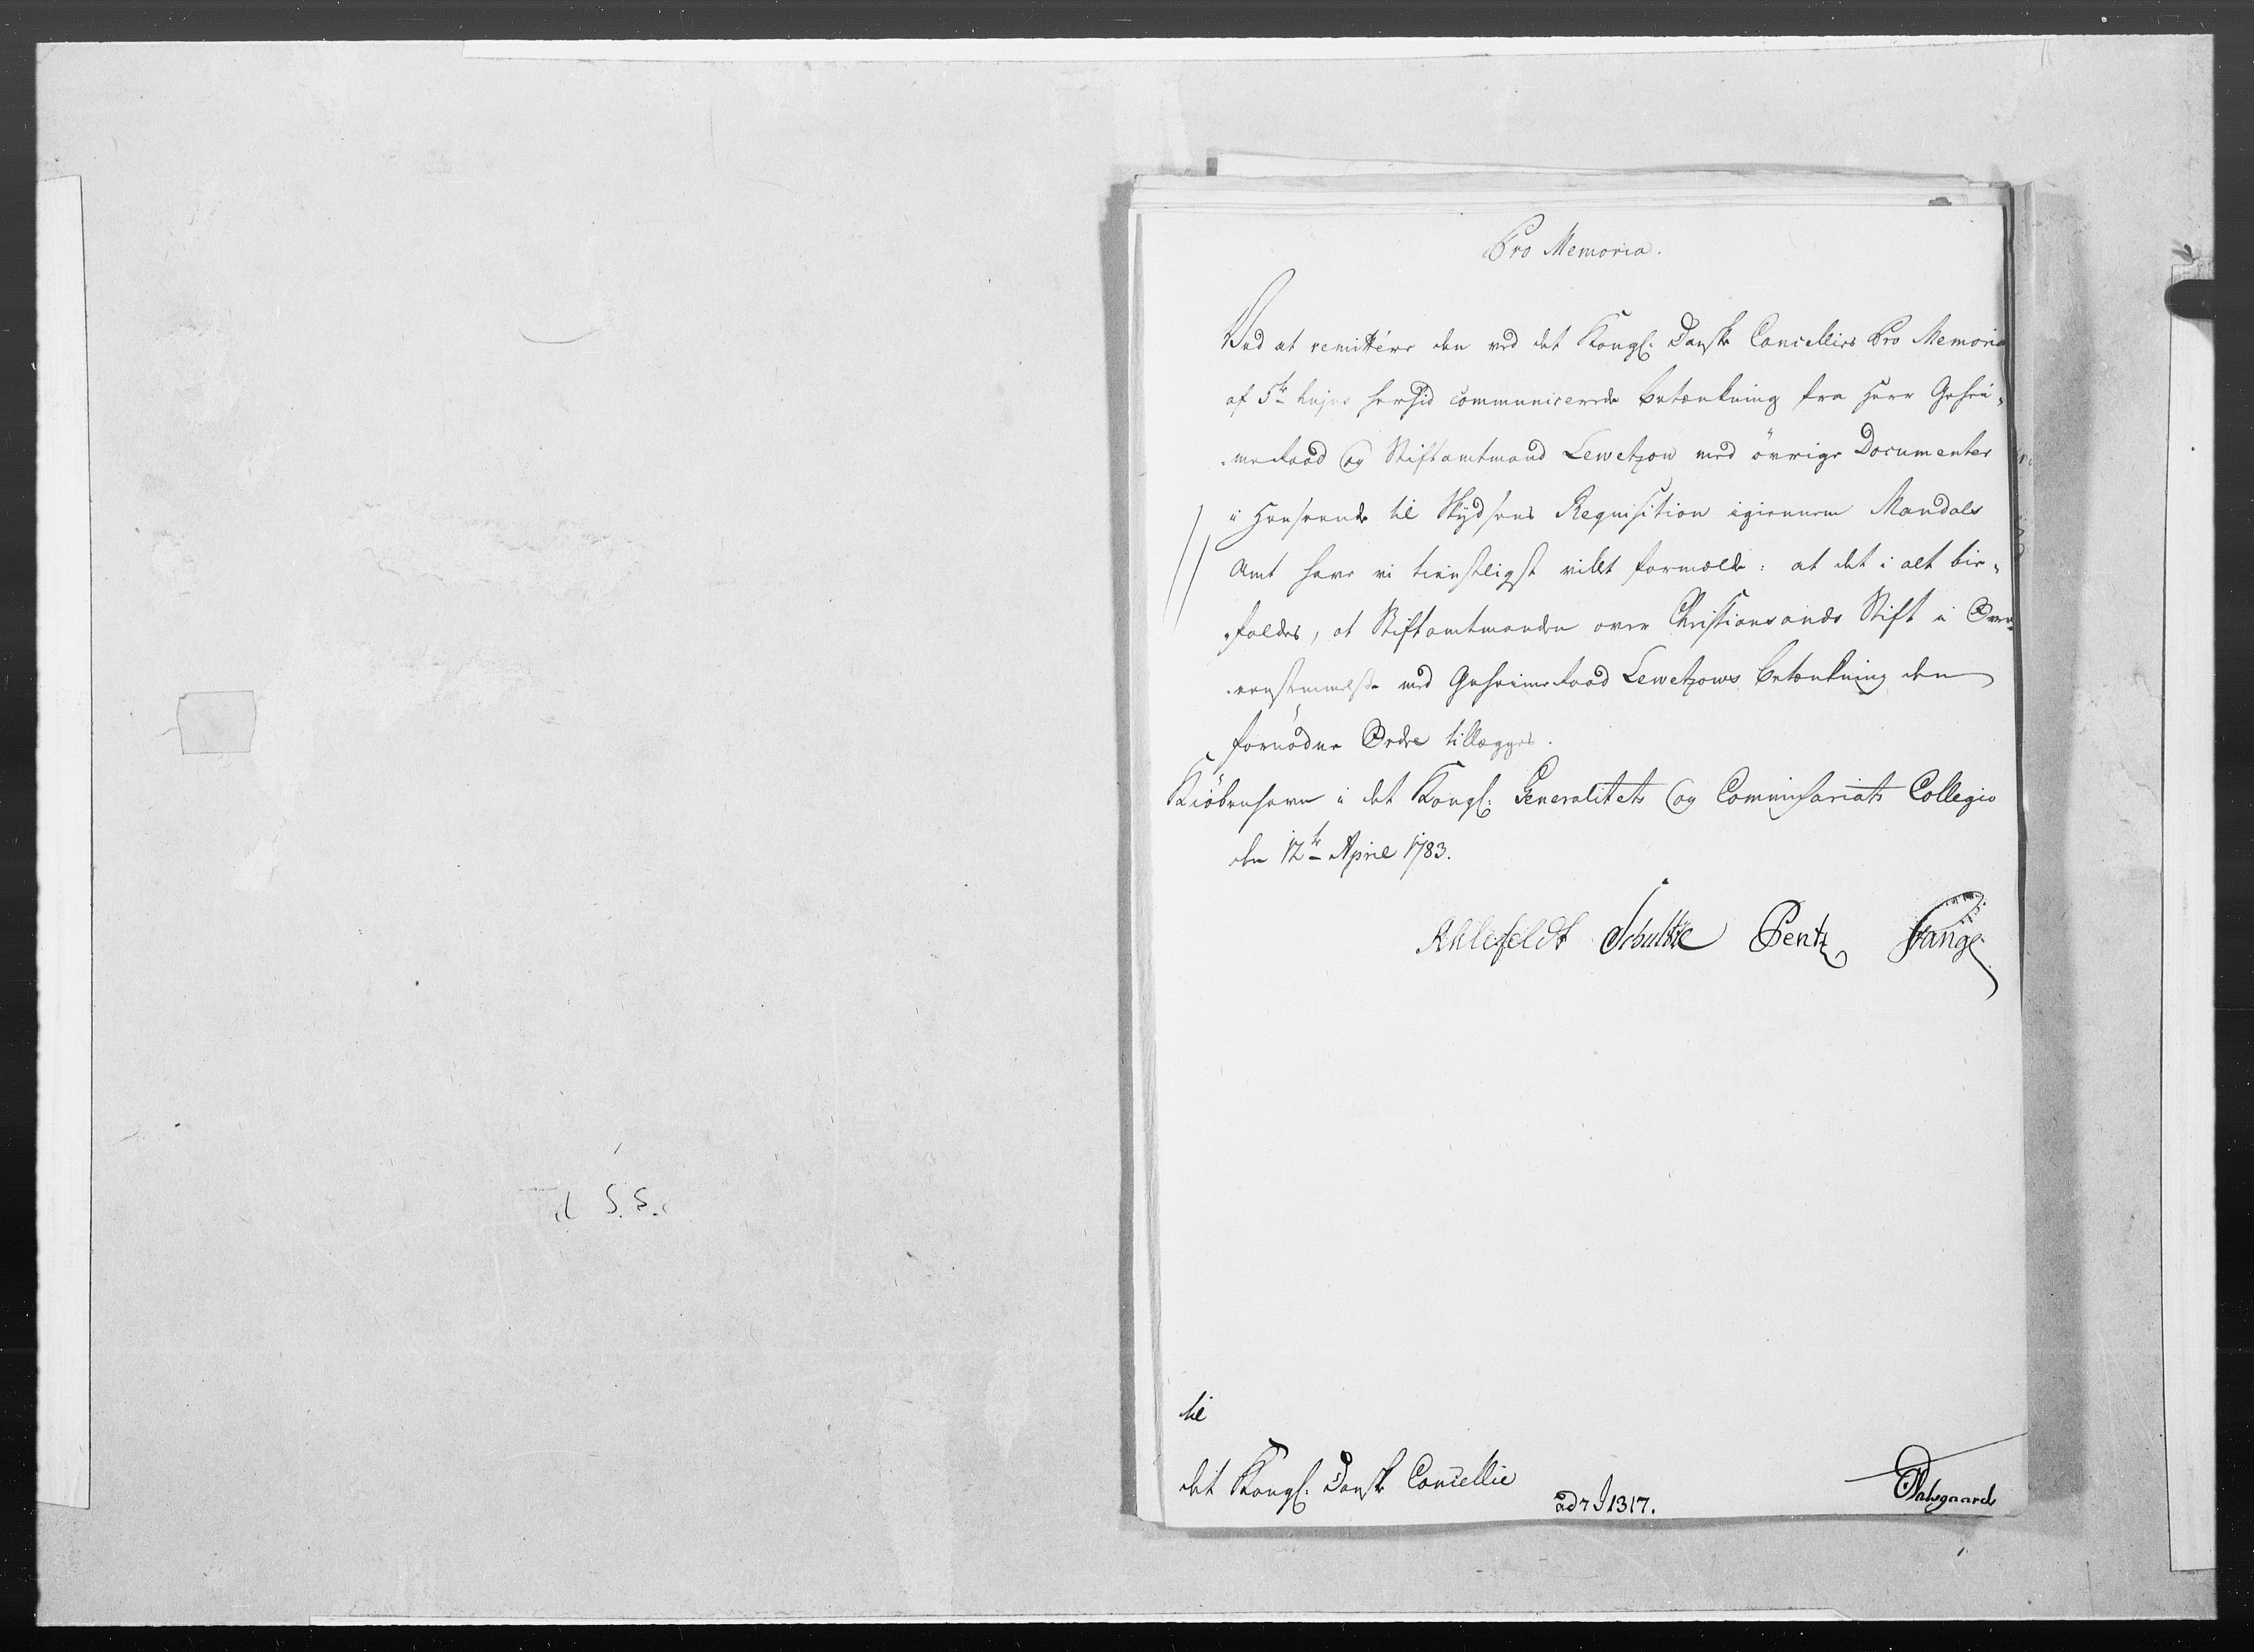 Pro Memoria.
Ved at remittere den ved det Kongl: Danske Cancellies Pro Memoria
af 5te hujus herhid communicerede Betænkning fra Herr Gehei„
„meRaad og Stiftamtmand Lewetzow med övrige Documenter
i Henseende til Skydsens Requisition igiennem Mandals
Amt have vi tienstligst villet formelde: at det i alt bie„
„faldes, at Stiftamtmanden over Christiansands Stift i Over„
„eensstemmelse med GeheimeRaad Lewetzows Betænkning den
fornödne Ordre tillægges.
Kiöbenhavn i det Kongl: Generalitets og Commissariats Collegio
den 12te April 1783.
Ahlefeldt Schultze Pentz Fange
til
det Kongl: Danske Cancellie
ad 7 J 1317.
Palsgaard
til S.S.